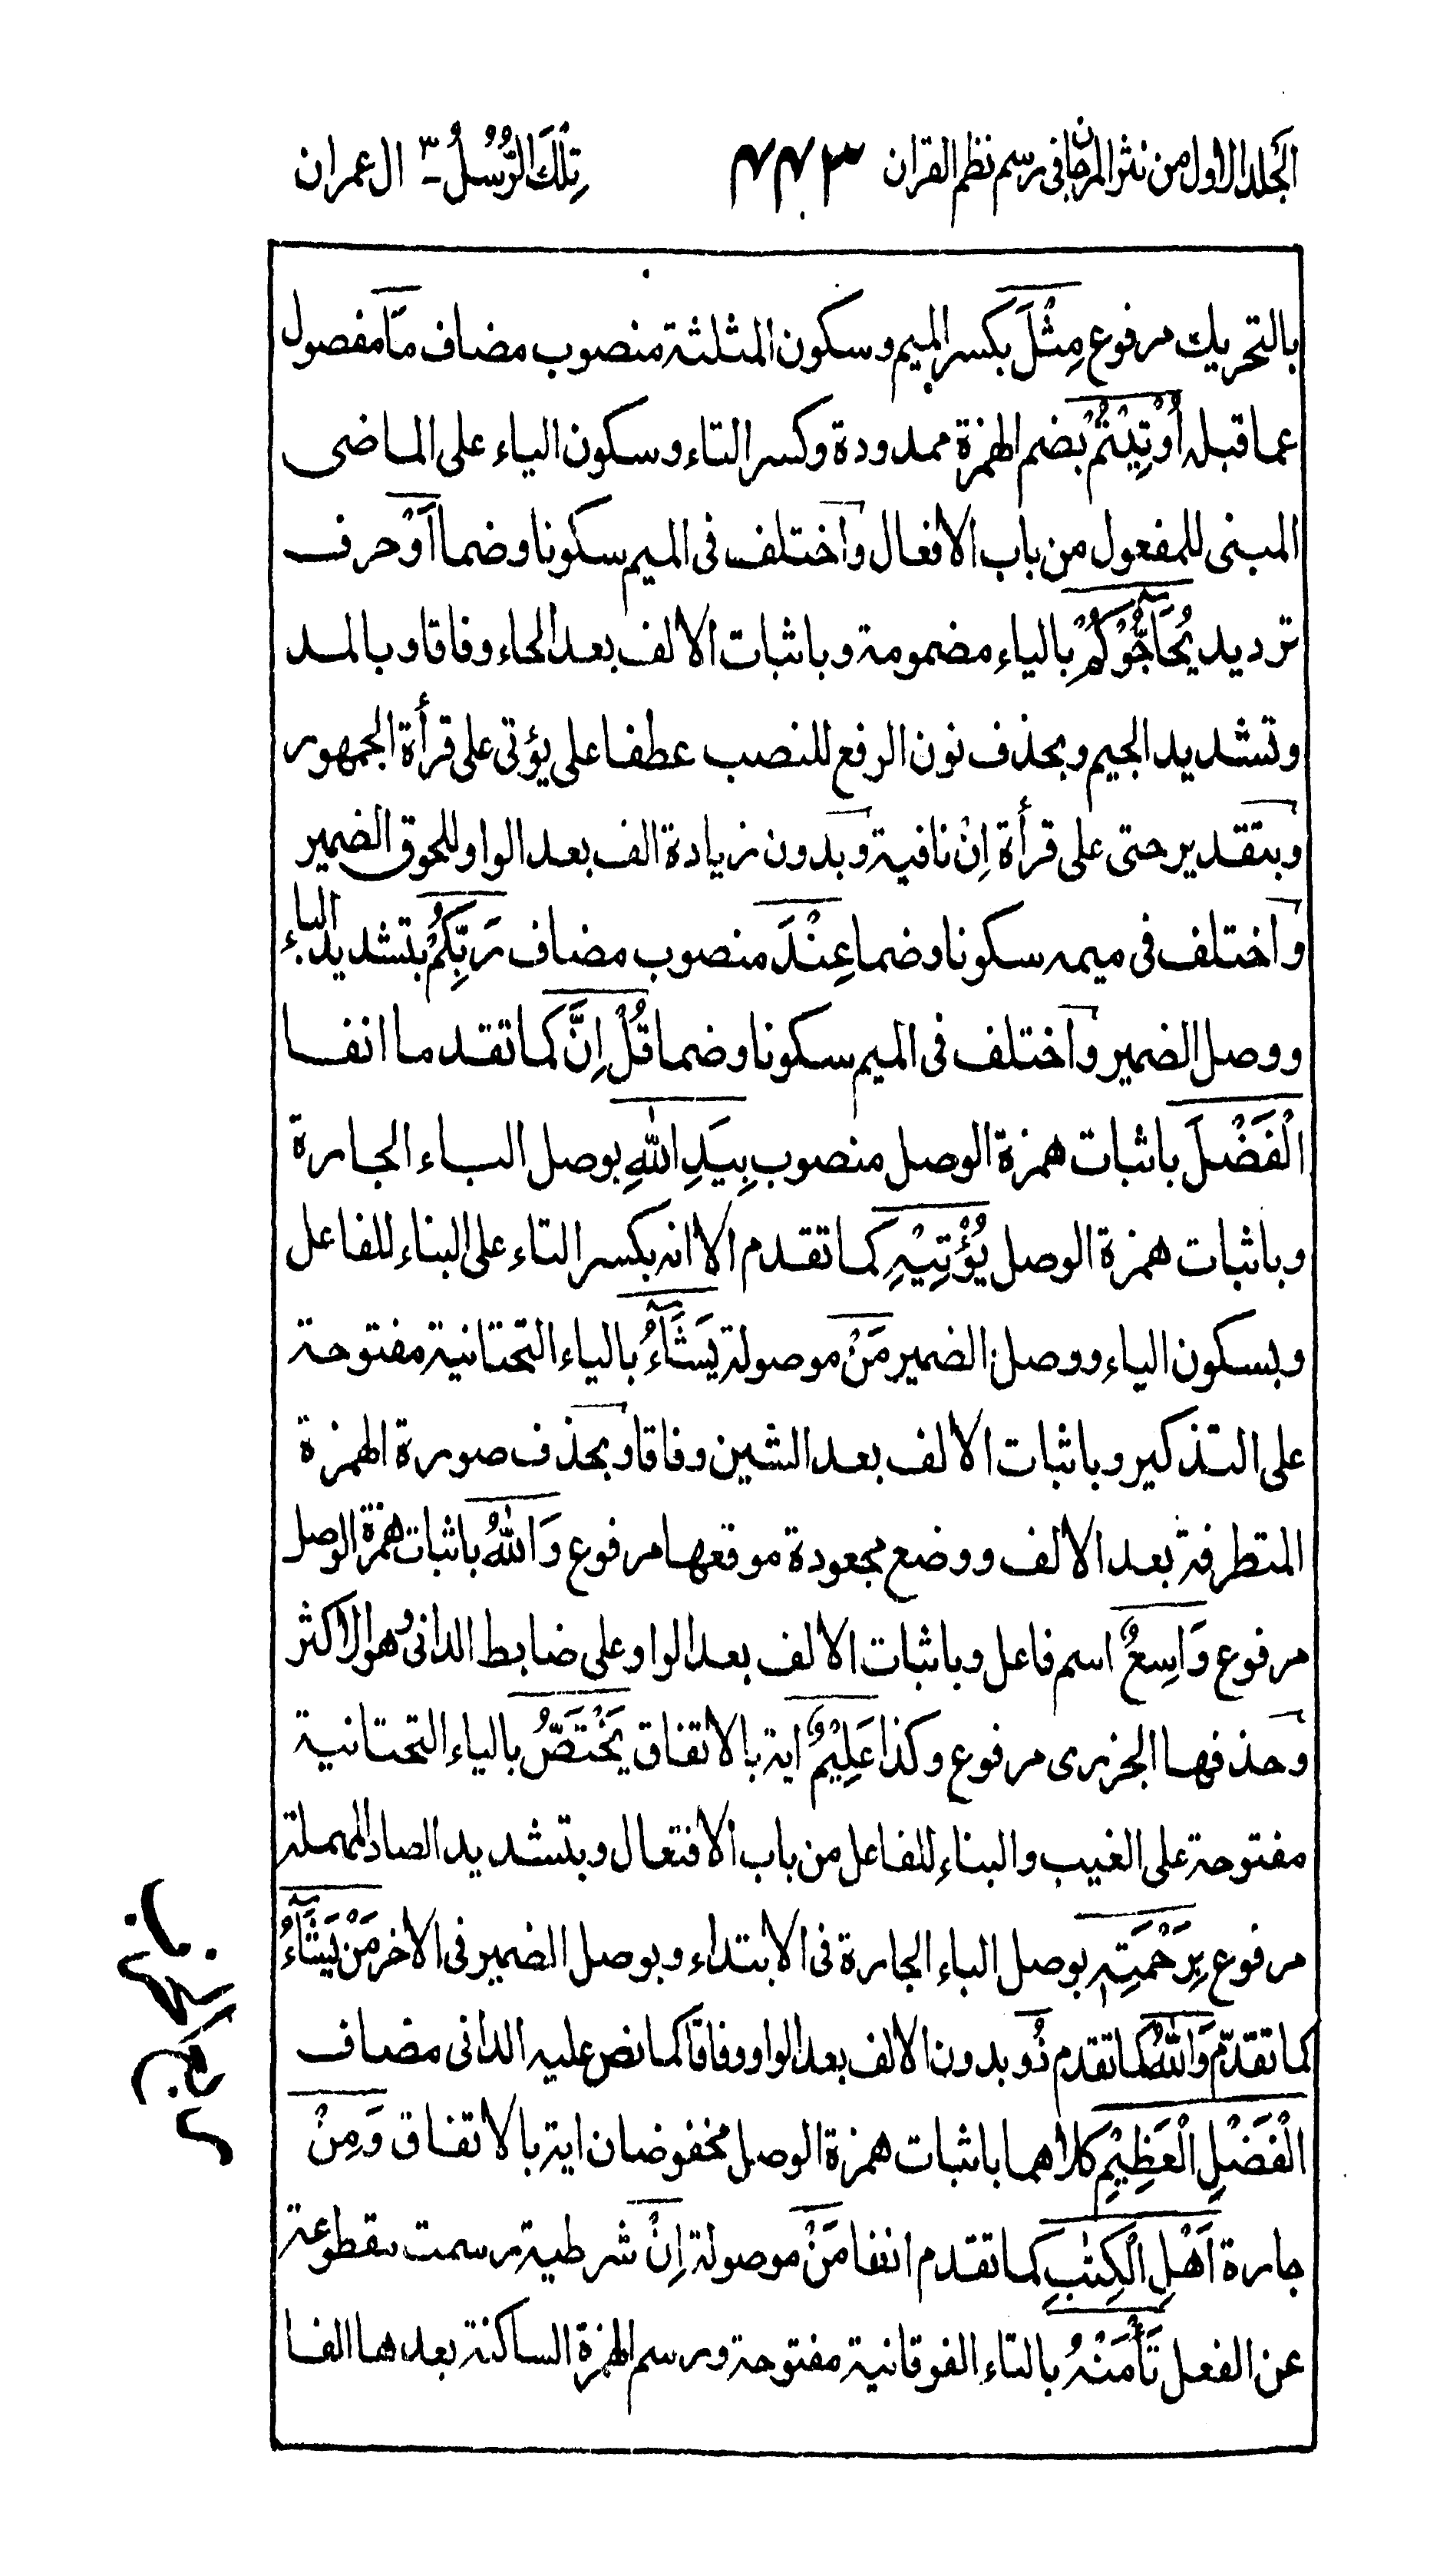 الجلد الاول من نثر المرجان فى رسم نظم القران ٤٤٣ تِلْكَ الرُّسُلُ ـ ٣ ال عمران
بالتحريك مرفوع مِثْلَ بكسر الميم وسكون المثلثة منصوب مضاف مَآ مفصول
عما قبله اُوْتِيْتُمْ بضم الهمزة ممدودة وكسر التاء وسكون الياء على الماضى
المبنى للمفعول من باب الافعال واختلف فى الميم سكونا وضما اَوْ حرف
ترديد يُحَآجُّوْكُمْ بالياء مضمومة وباثبات الالف بعد الحاء وفاقا وبالمد
وتشديد الجيم وبحذف نون الرفع للنصب عطفا على يؤتى على قرأة الجمهور
وبتقدير حتى على قرأة اِنْ نافية وبدون زيادة الف بعد الواو للحوق الضمير
واختلف فى ميمه سكونا وضما عِنْدَ منصوب مضاف رَبِّكُمْ بتشديد الباء
ووصل الضمير واختلف فى الميم سكونا وضما قُلْ اِنَّ كما تقدما انفا
الْفَضْلَ باثبات همزة الوصل منصوب بِيَدِ اللّٰهِ بوصل الباء الجارة
وباثبات همزة الوصل يُؤْتِيْهِ كما تقدم الا انه بكسر التاء على البناء للفاعل
وبسكون الياء ووصل الضمير مَنْ موصولة يَشَآءُ بالياء التحتانية مفتوحة
على التذكير وباثبات الالف بعد الشين وفاقا وبحذف صورة الهمزة
المتطرفة بعد الالف ووضع مجعودة موقعها مرفوع وَاللّٰهُ باثبات همزة الوصل
مرفوع وَاسِعٌ اسم فاعل وباثبات الالف بعد الواو على ضابط الدانى وهو الاكثر
وحذفها الجزرى مرفوع وكذا عَلِيْمٌ اية بالاتفاق يَخْتَصُّ بالياء التحتانية
مفتوحة على الغيب والبناء للفاعل من باب الافتعال وبتشديد الصاد المهملة
مرفوع بِرَحْمَتِهٖ بوصل الباء الجارة فى الابتداء وبوصل الضمير فى الاخر مَنْ يَشَآءُ
كما تقدّم وَاللّٰهُ كما تقدم ذُو بدون الالف بعد الواو وفاقا كما نص عليه الدانى مضاف
الْفَضْلِ الْعَظِيْمِ كلاهما باثبات همزة الوصل مخفوضان اية بالاتفاق وَمِنْ
جارة اَهْلِ الْكِتٰبِ كما تقدم انفا مَنْ موصولة اِنْ شرطية رسمت مقطوعة
عن الفعل تَأْمَنْهُ بالتاء الفوقانية مفتوحة ورسم الهمزة الساكنة بعدها الفا